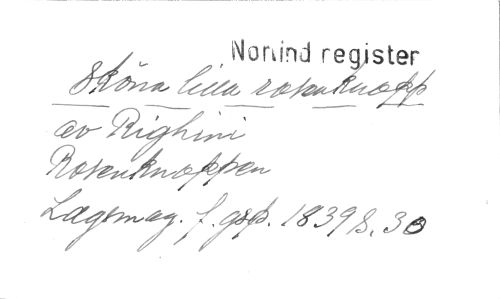 Norlind register
Sköna lilla rosenknopp
av Righini
Rosenknoppen
Lagsmag. f. gsp. 1839 s. 30